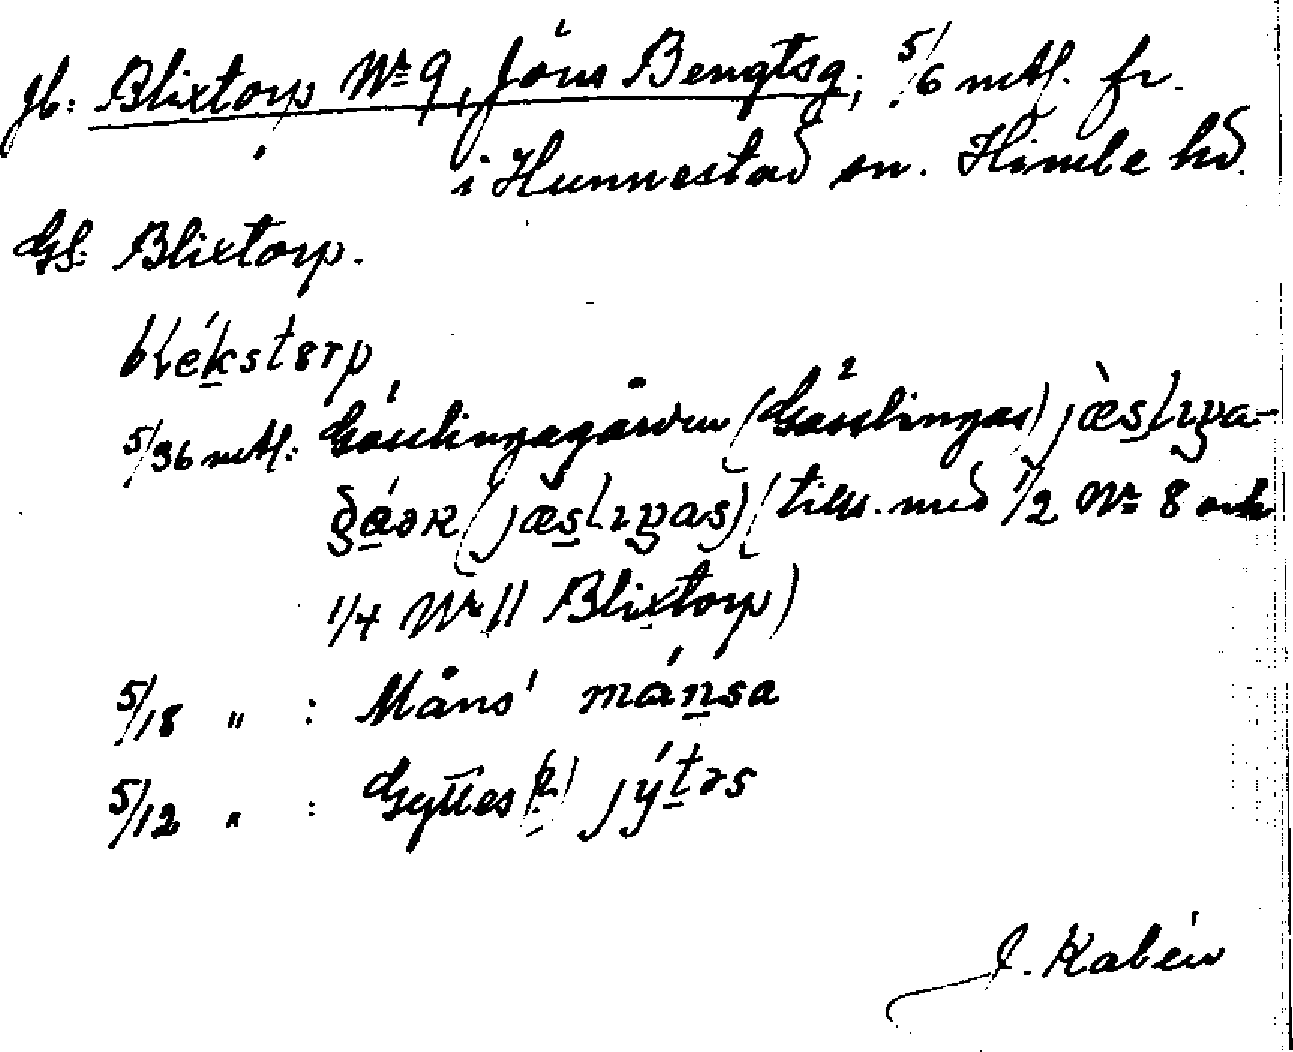 Jb: Blixtorp Nr 9, Jöns Bengtsg; 5/6 mtl. fr.
i Hunnestad sn. Himle hd.
Gs: Blixtorp.
blékstɵrp
5/36 mtl: Gässlingagården (Gässlingas) jæ̀slıŋa-
gáɔʀ (jæslıŋas) (tills. med 1/2 Nr 8 och
1/4 Nr 11 Blixtorp)
5/18 " : Måns' mánsa
5/12 " : Gyttes (?) jýtəs
J. Kalén